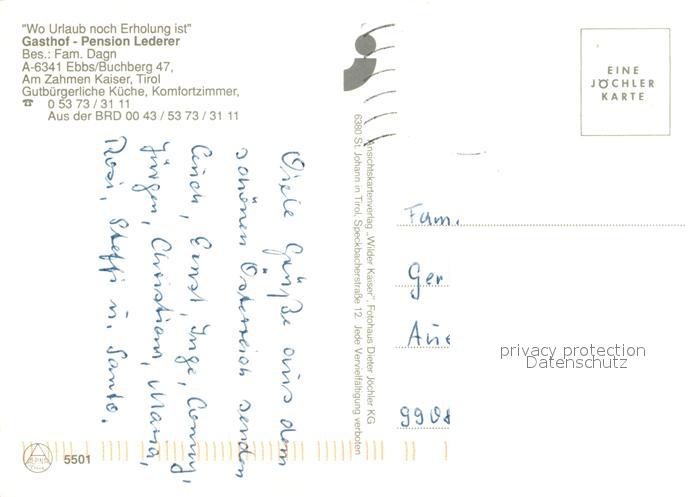 "Wo Urlaub noch Erholung ist"
Gasthof - Pension Lederer
Bes.: Fam. Dagn
A-6341 Ebbs/Buchberg 47,
Am Zahmen Kaiser, Tirol
Gutbürgerliche Küche, Komfortzimmer,
☎ 0 53 73 / 31 11
Aus der BRD 00 43 / 53 73 / 31 11
Viele Grüße aus dem
schönen Österreich senden
Euch, Ernst, Inge, Conny,
Jürgen, Christian, Maria,
Rosi, Steffi u. Santo.
5501
Ansichtskartenverlag „Wilder Kaiser", Fotohaus Dieter Jöchler KG
6380 St. Johann in Tirol, Speckbacherstraße 12. Jede Vervielfältigung verboten
EINE
JÖCHLER
KARTE
Fam.
Ger
Aue
privacy protection
Datenschutz